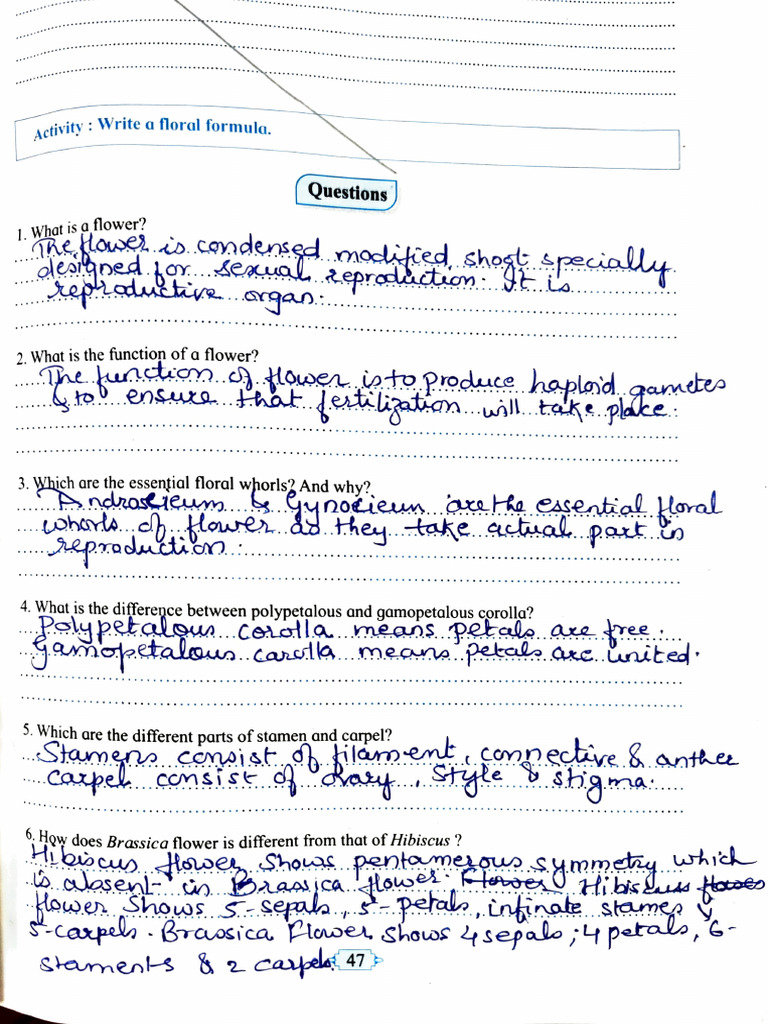 Activity : Write a floral formula.
Questions
1. What is a flower?
The flower is condensed modified shoot specially
designed for sexual reproduction. It is
reproductive organ.
2. What is the function of a flower?
The function of flower is to produce haploid gametes
& to ensure that fertilization will take place.
3. Which are the essential floral whorls? And why?
Androecieum & Gynocieun are the essential floral
whorls of flower as they take actual part in
reproduction.
4. What is the difference between polypetalous and gamopetalous corolla?
Polypetalous corolla means petals are free.
Gamopetalous carolla means petals are united.
5. Which are the different parts of stamen and carpel?
Stamens consist of filament, connective & anther
carpel consist of Ovary, Style & stigma.
6. How does Brassica flower is different from that of Hibiscus ?
Hibiscus flower shows pentamerous symmetry which
is absent in Brassica flower. Flower Hibiscus flower
flower shows 5-sepals, 5-petals, infinate stames
5-carpels. Brassica Flower shows 4 sepals; 4 petals, 6-
staments & 2 carpels.
47